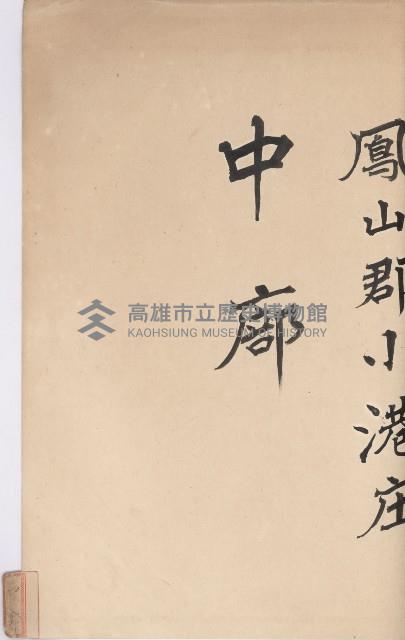 鳳山郡小港庄
中廓
高雄市立歷史博物館
KAOHSIUNG MUSEUM OF HISTORY